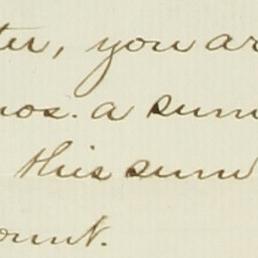 ter, you ar
nos. a sum
this sum
ount.